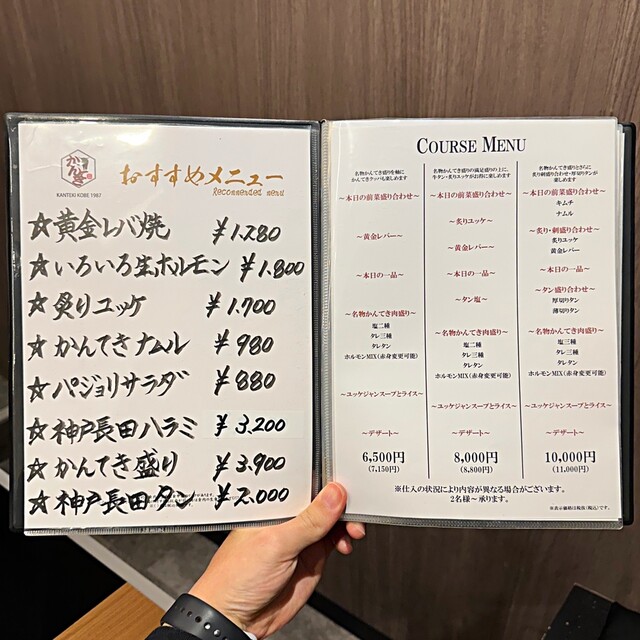 かんてき
KANTEKI KOBE 1987
おすすめメニュー
Recommented menu
☆黄金レバ焼 ¥1.780
☆いろいろ生ホルモン ¥1.800
☆炙りユッケ ¥1.700
☆かんてきナムル ¥980
☆パジョリサラダ ¥880
☆神戸長田ハラミ ¥3.200
☆かんてき盛り ¥3.900
☆神戸長田タン ¥2.000
COURSE MENU
名物かんてき盛りを軸に
かんてきクッパも楽しめます
~本日の前菜盛り合わせ~
~黄金レバー~
~本日の一品~
~名物かんてき肉盛り~
塩二種
タレ三種
タレタン
ホルモンMIX(赤身変更可能)
~ユッケジャンスープとライス~
~デザート~
6,500円
(7,150円)
名物かんてき盛りの満足盛りの上に、
牛タン・炙りユッケがお得に楽しめます
~本日の前菜盛り合わせ~
~炙りユッケ~
~黄金レバー~
~本日の一品~
~タン塩~
~名物かんてき肉盛り~
塩二種
タレ三種
タレタン
ホルモンMIX(赤身変更可能)
~ユッケジャンスープとライス~
~デザート~
8,000円
(8,800円)
名物かんてき盛りとさらに
炙り刺盛り合わせ・厚切りタンが
楽しめます
~本日の前菜盛り合わせ~
キムチ
ナムル
~炙り・刺盛り合わせ~
炙りユッケ
黄金レバー
~本日の一品~
~タン盛り合わせ~
厚切りタン
薄切りタン
~名物かんてき肉盛り~
塩三種
タレ三種
タレタン
ホルモンMIX(赤身変更可能)
~ユッケジャンスープとライス~
~デザート~
10,000円
(11,000円)
※仕入の状況により内容が異なる場合がございます。
2名様~承ります。
※表示価格は税抜(税込)です。